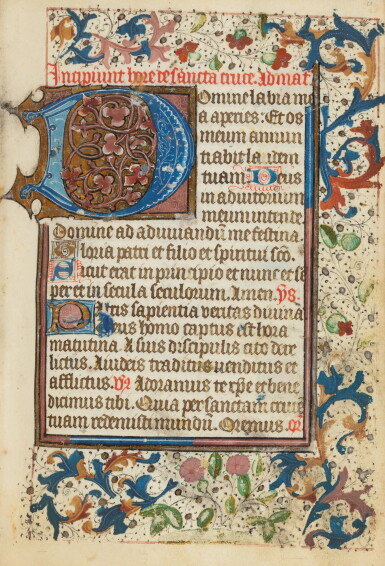 Incipiunt hore de sancta cruce. Ad mat
Domine labia me
a aperies: Et os
meum annun
tiabit laudem
tuam Deus
in adiutorium
meum intende.
Domine ad adiuuandū me festina.
Gloria patri et filio et spiritui scō.
Sicut erat in principio et nunc et sē
per et in secula seculorum. Amen. ys.
Patris sapientia veritas diuina
deus homo captus est hora
matutina. A suis discipulis cito dere
lictus. A iudeis traditus uenditus et
afflictus. Adoramus te xp̄e et bene
dicimus tibi. Quia per sanctam cruce
tuam redemisti mundū. Oremus.